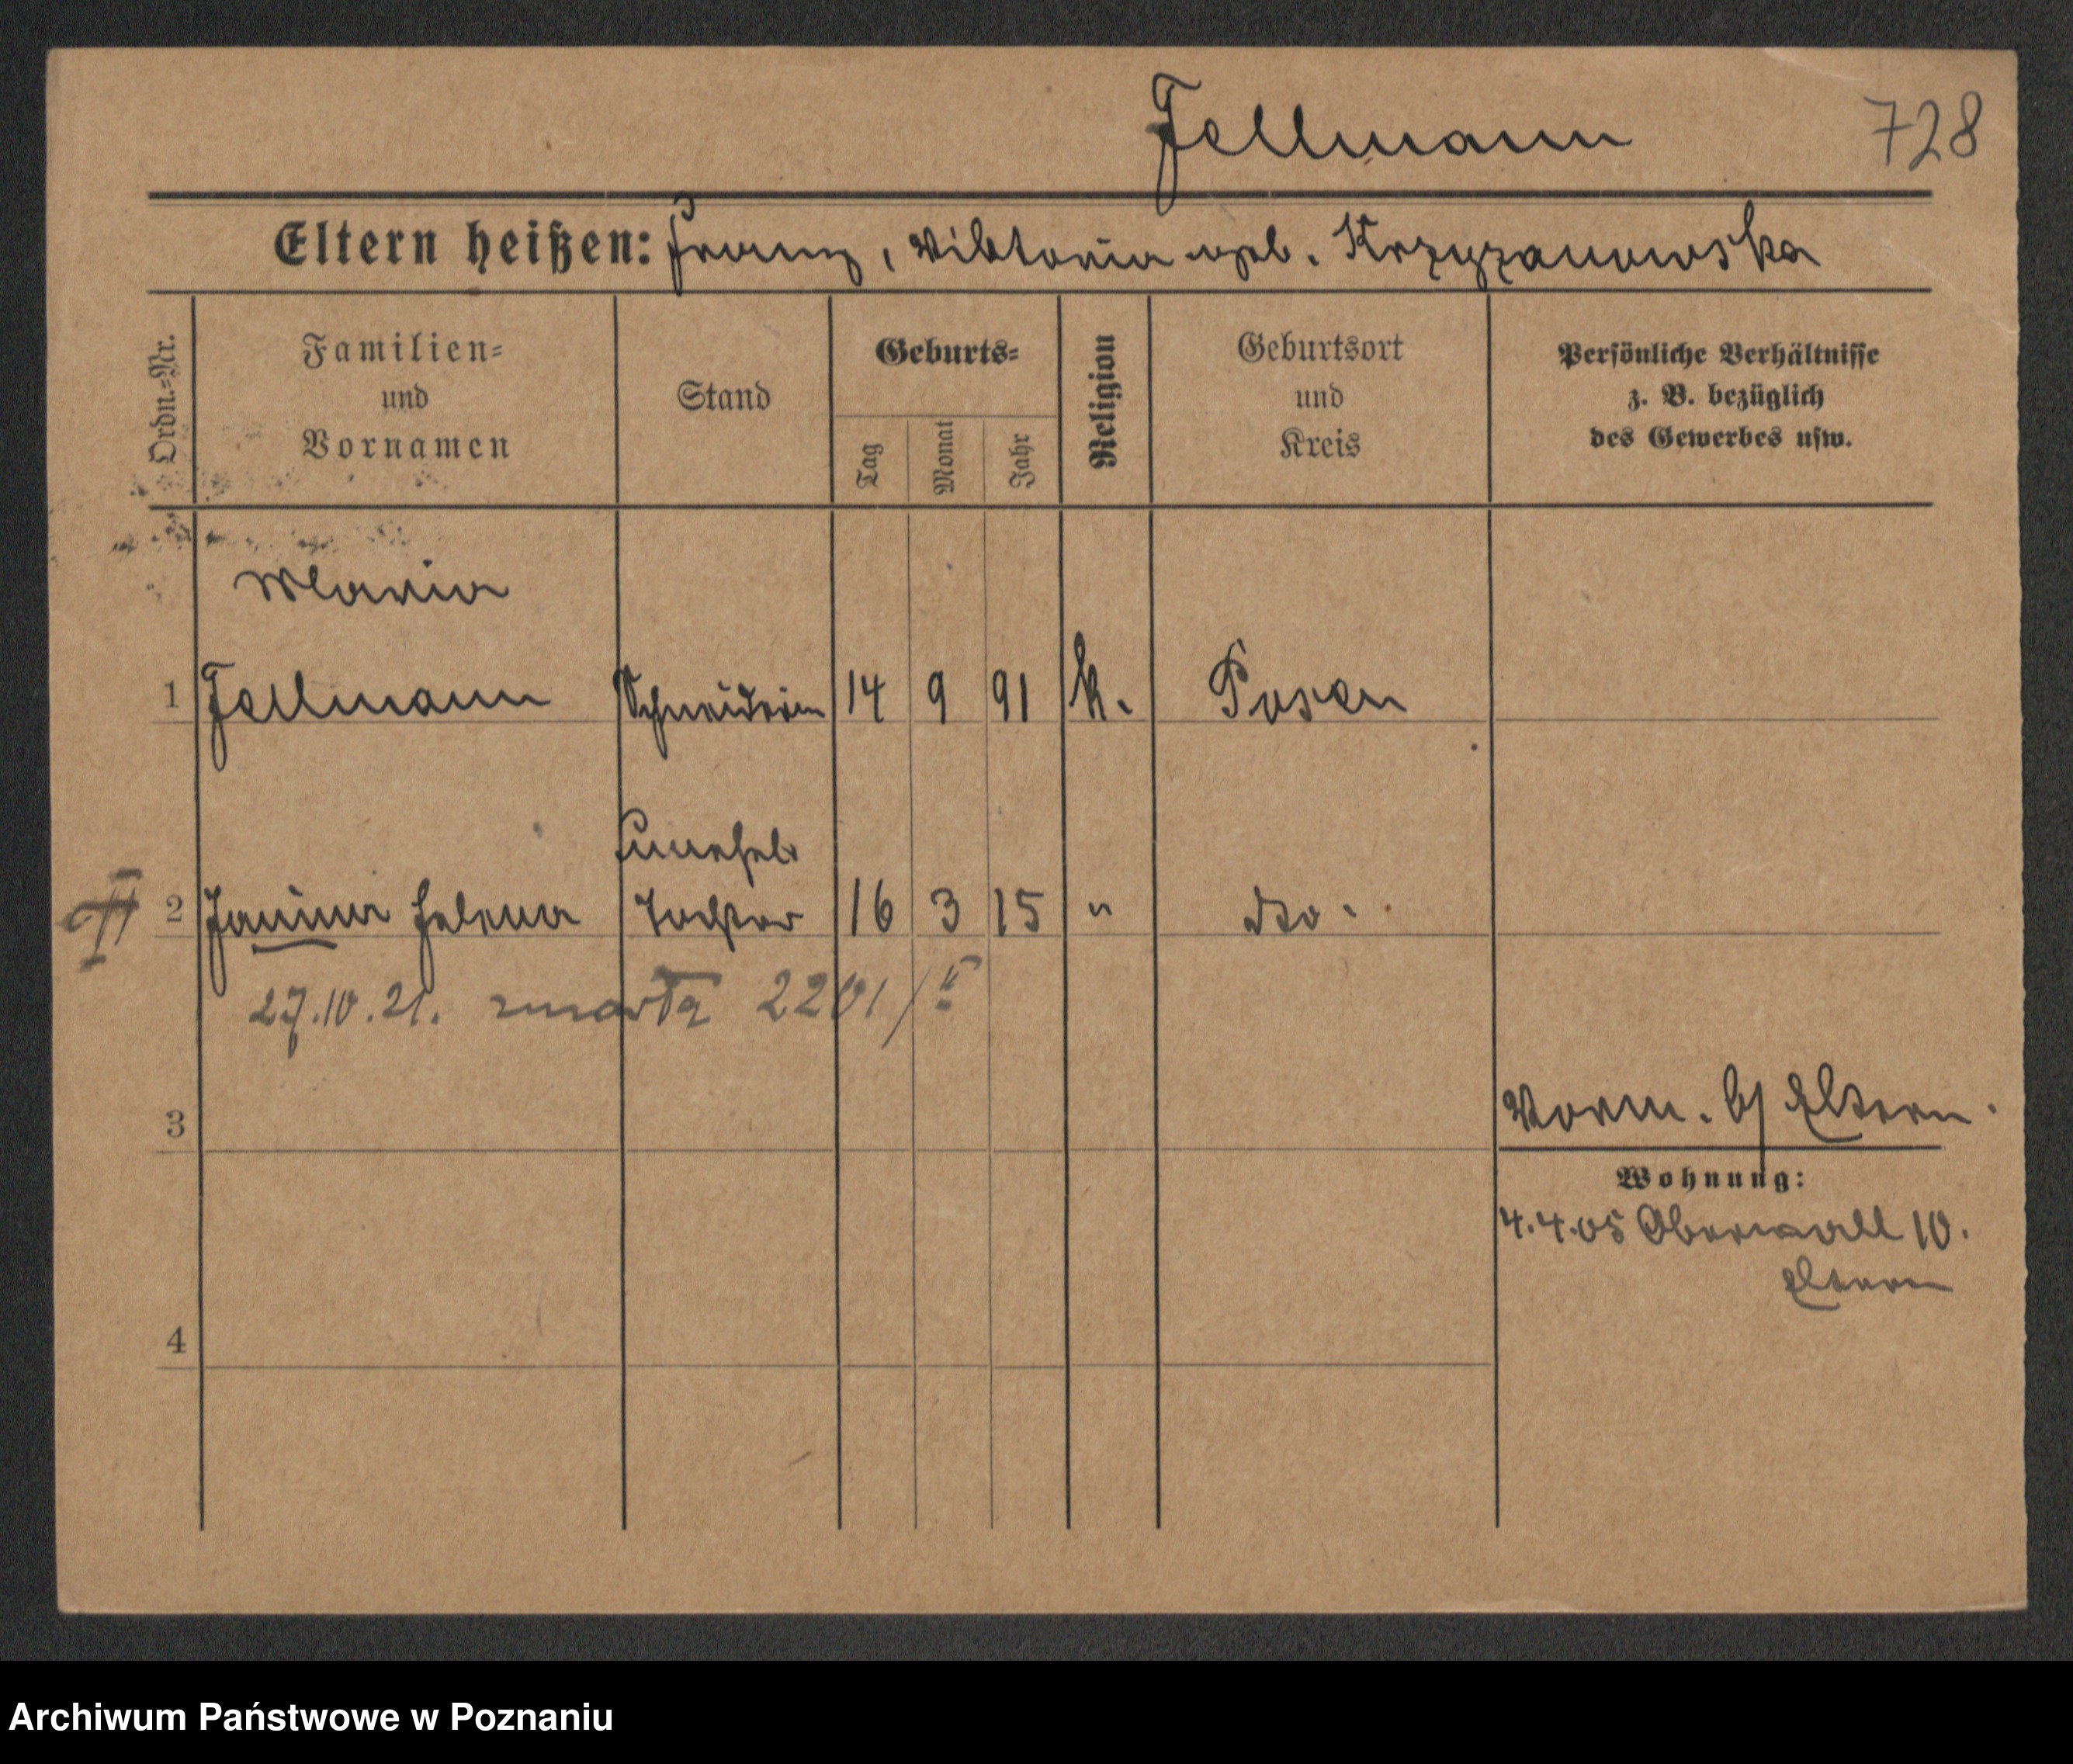 Fellmann 728
Eltern heißen: Franz, Viktoria geb. Krzyzanowska
Ordn.-Nr.
Familien- und Vornamen
Stand
Geburts-
Tag Monat Jahr
Religion
Geburtsort und Kreis
Persönliche Verhältnisse
z. B. bezüglich
des Gewerbes usw.
Maria
1 Fellmann Schneiderin 14 9 91 k. Posen
Unehel
2 Janina Helena Tochter 16 3 15 " dto.
27.10.21. zmarła 2201/II
3
Vorm. b/ Eltern.
Wohnung:
4.4.05 Oberwall 10.
Eltern
4
Archiwum Państwowe w Poznaniu